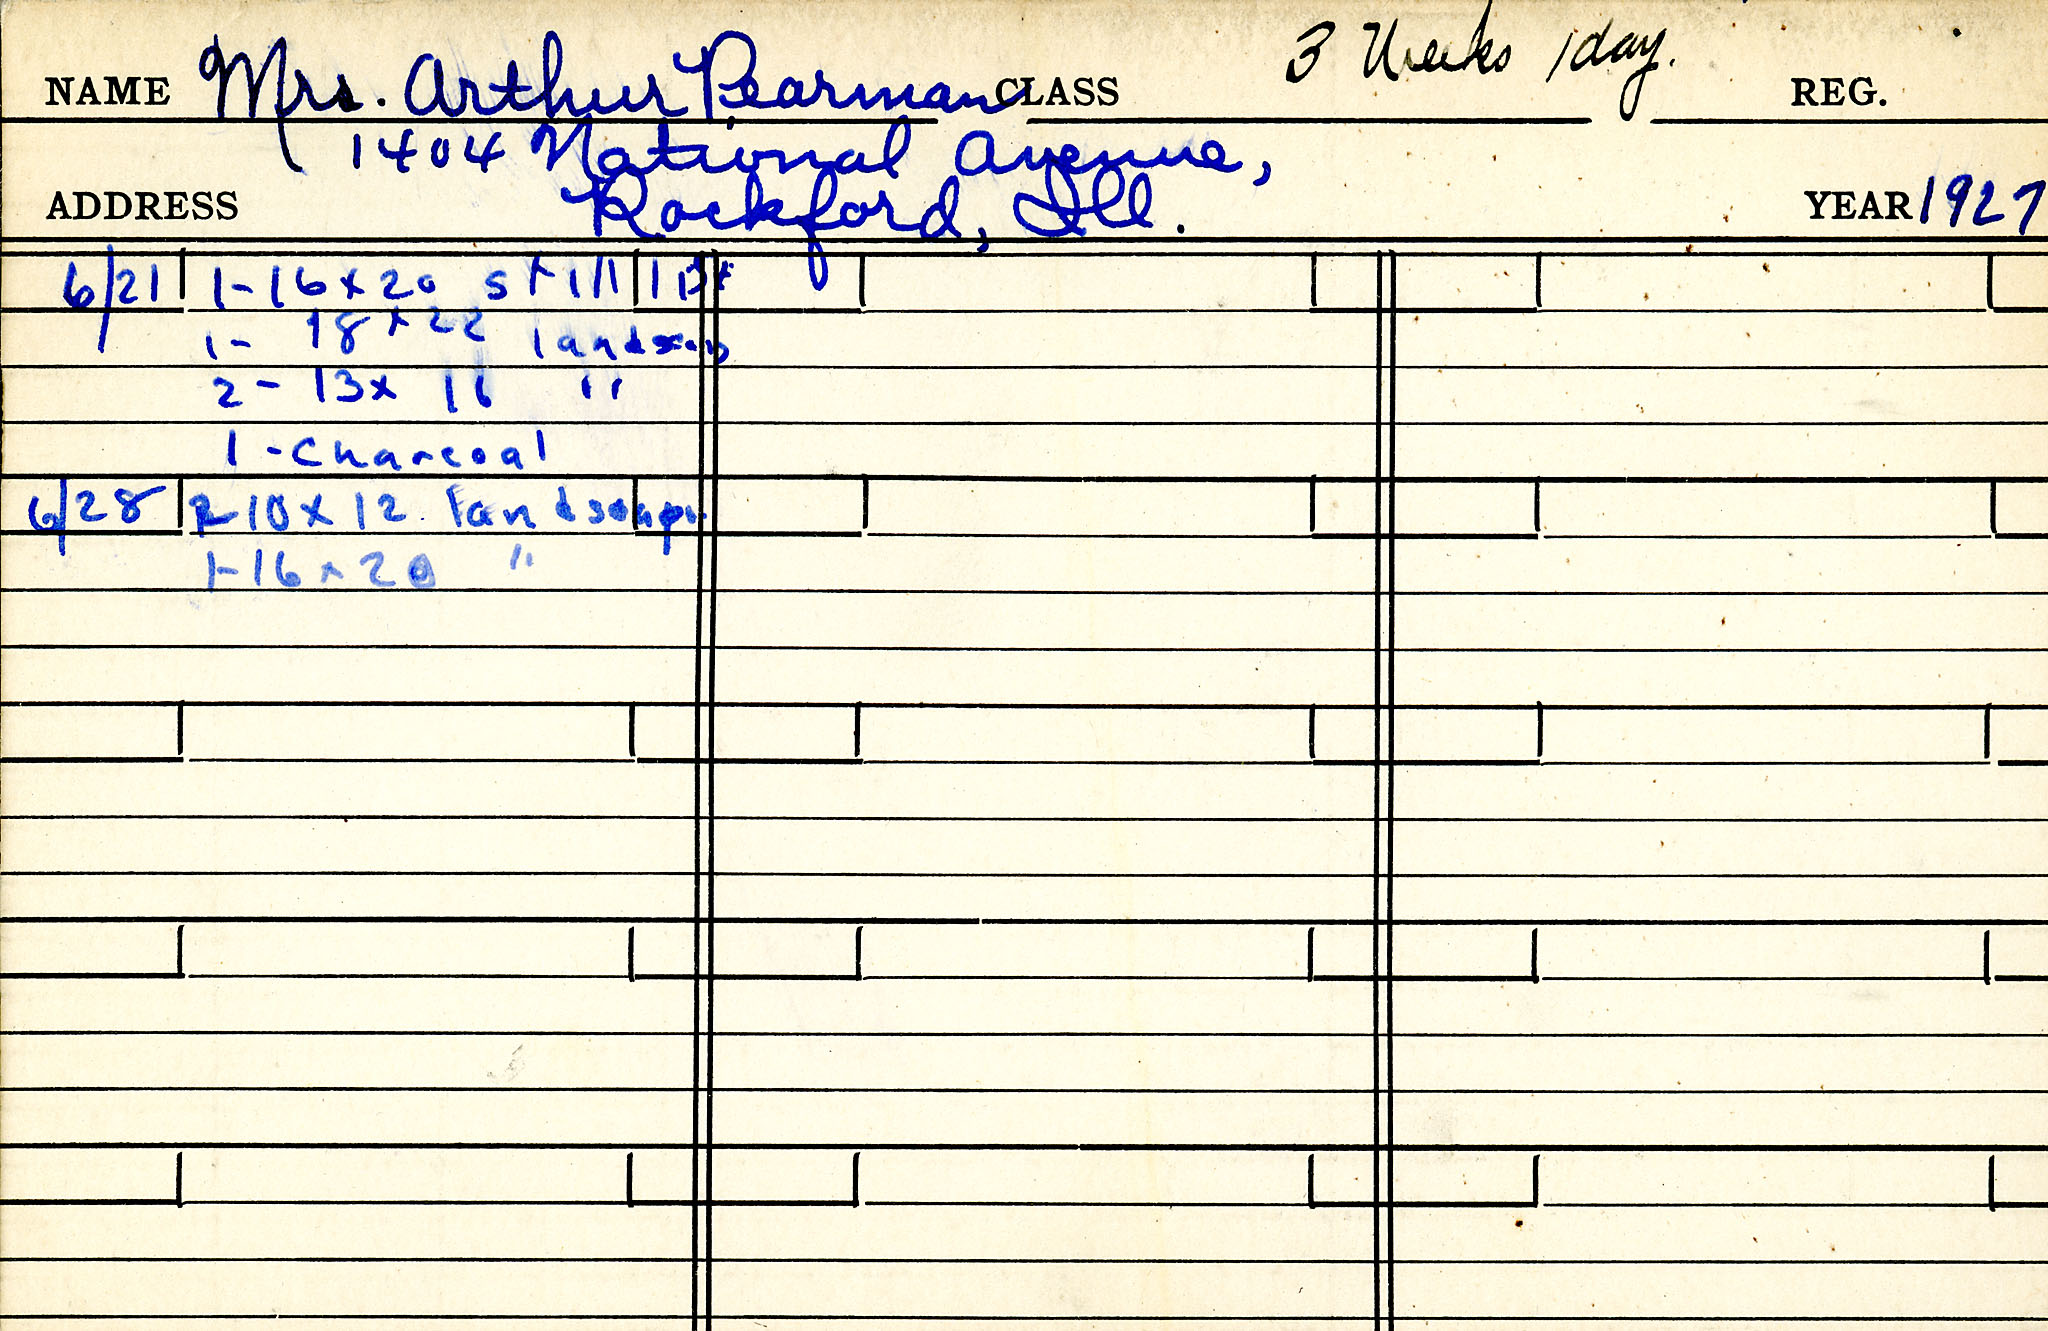 NAME Mrs. Arthur Pearman CLASS 3 Weeks 1 day. REG.
1404 National Avenue,
ADDRESS Rockford, Ill. YEAR 1927
6/21 1-16x20 still
1- 18x22
2- 13x 16 "
1-Charcoal
6/28 2-10x12 landscape
1-16x20 "